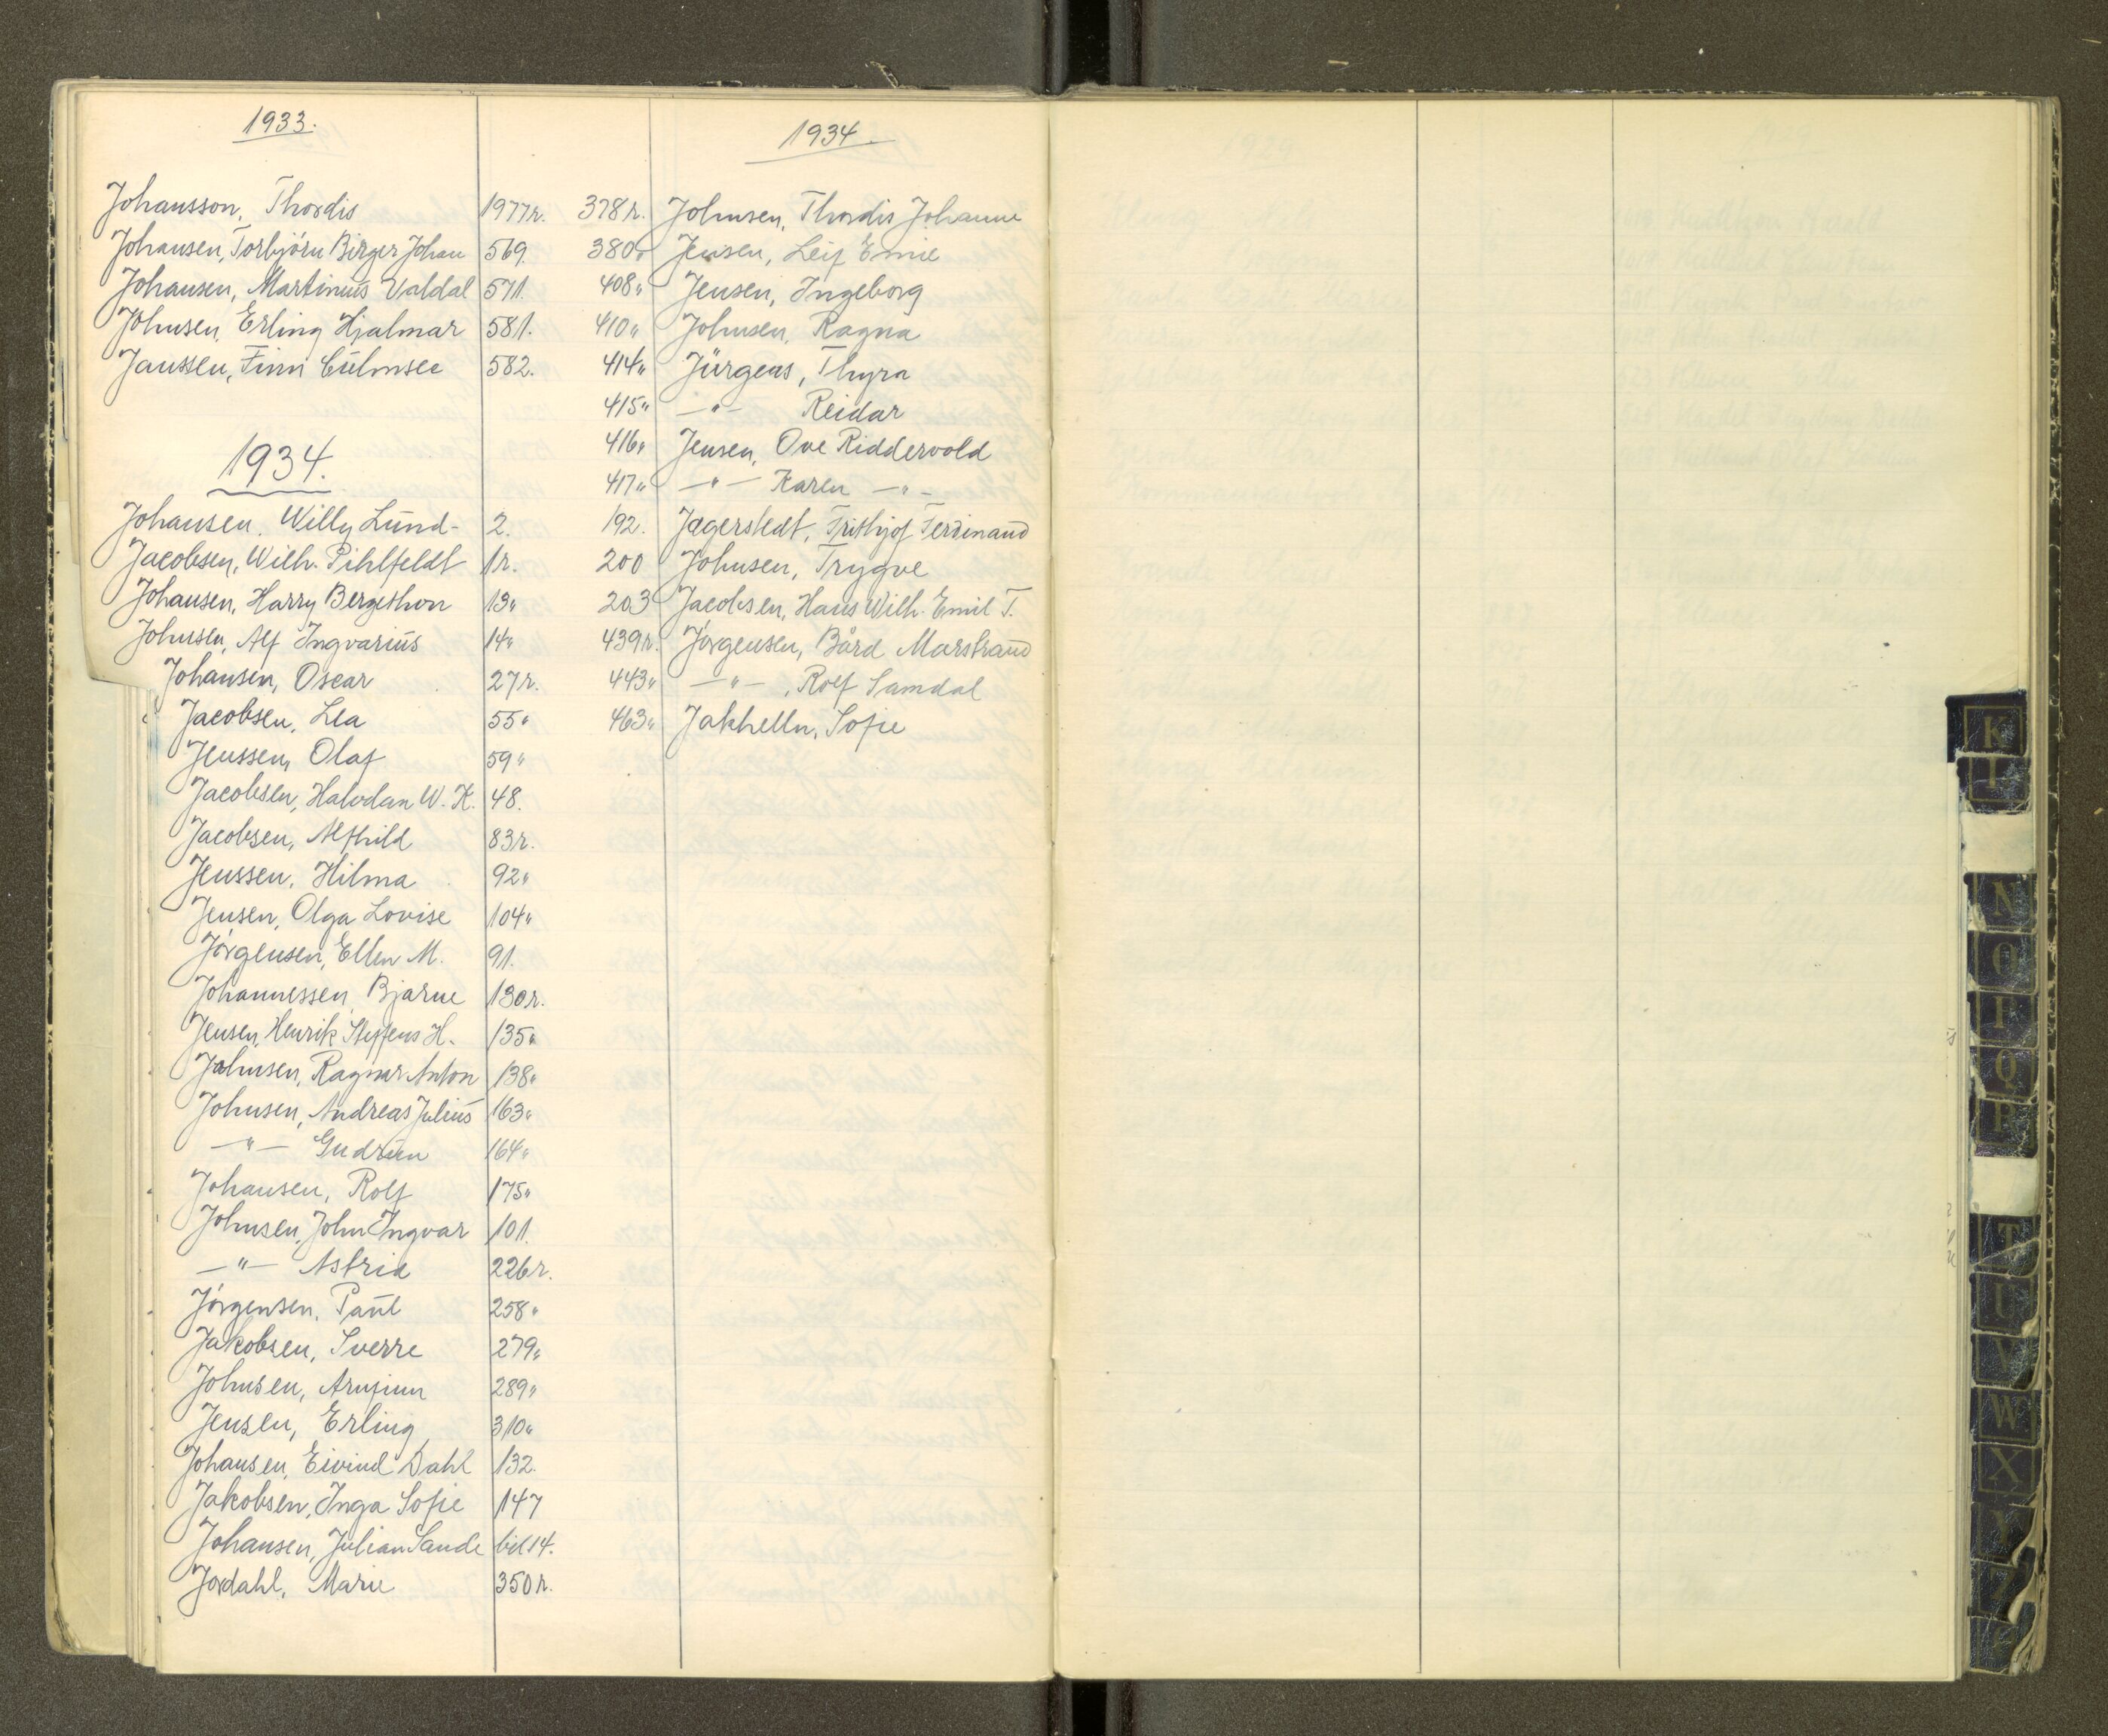 1933.
Johansson, Thordis 1977r.
Johansen, Torbjörn Birger Johan 569.
Johansen, Martinius Valdal 571.
Johnsen, Erling Hjalmar 581.
Janssen, Finn Culmsee 582.
1934.
Johansen, Willy Lund- 2.
Jacobsen, Wilh. Pihlfeldt 1r.
Johansen, Harry Bergethon 13"
Johnsen, Alf Ingvarius 14"
Johansen, Oscar 27r.
Jacobsen, Lea 55"
Jenssen, Olaf 59"
Jacobsen, Halvdan W. K. 48.
Jacobsen, Alfhild 83r.
Jenssen, Hilma 92"
Jensen, Olga Lovise 104"
Jörgensen, Ellen M. 91.
Johannessen, Bjarne 130r.
Jensen, Henrik Steffens H. 135"
Johnsen, Ragnar Anton 138"
Johnsen, Andreas Julius 163"
—"— Gudrun 164"
Johansen, Rolf 175"
Johnsen, John Ingvar 101.
—"— Astrid 226r.
Jörgensen, Paul 258"
Jakobsen, Sverre 279"
Johnsen, Arnfinn 289"
Jensen, Erling 310"
Johansen, Eivind Dahl 132.
Jakobsen, Inga Sofie 147
Johansen, Julian Sande bil 14.
Jordahl, Marie 350r.
1934.
378r. Johnsen, Thordis Johanne
380" Jensen, Leif Emil
408" Jensen, Ingeborg
410" Johnsen, Ragna
414" Jürgens, Thyra
415" —"— Reidar
416" Jensen, Ove Riddervold
417" —"— Karen —"—
192. Jagerstedt, Frithjof Ferdinand
200 Johnsen, Trygve
203 Jacobsen, Hans Wilh. Emil T.
439r. Jörgensen, Bård Marstrand
443" —"—, Rolf Samdal
463" Jakhelln, Sofie
K
L
N
O
P
Q
R
T
U
V
W
X
Y
Z